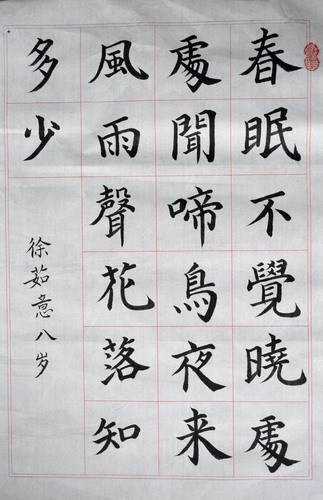 春眠不覺曉處
處聞啼鳥夜来
風雨聲花落知
多少
徐茹意八岁